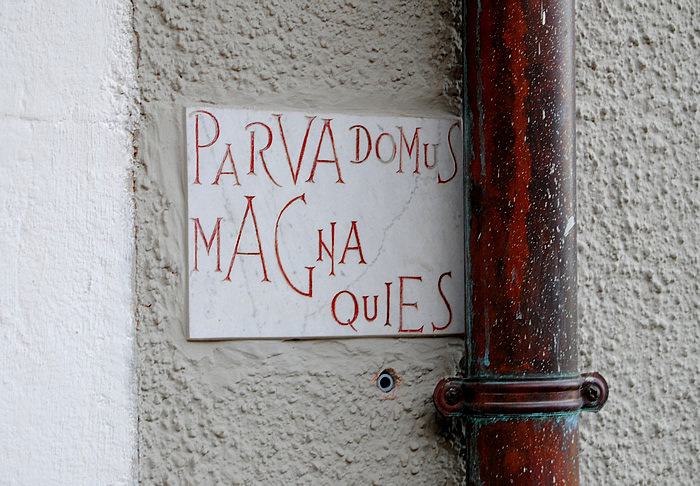 PARVA DOMUS
MAGNA
QUIES